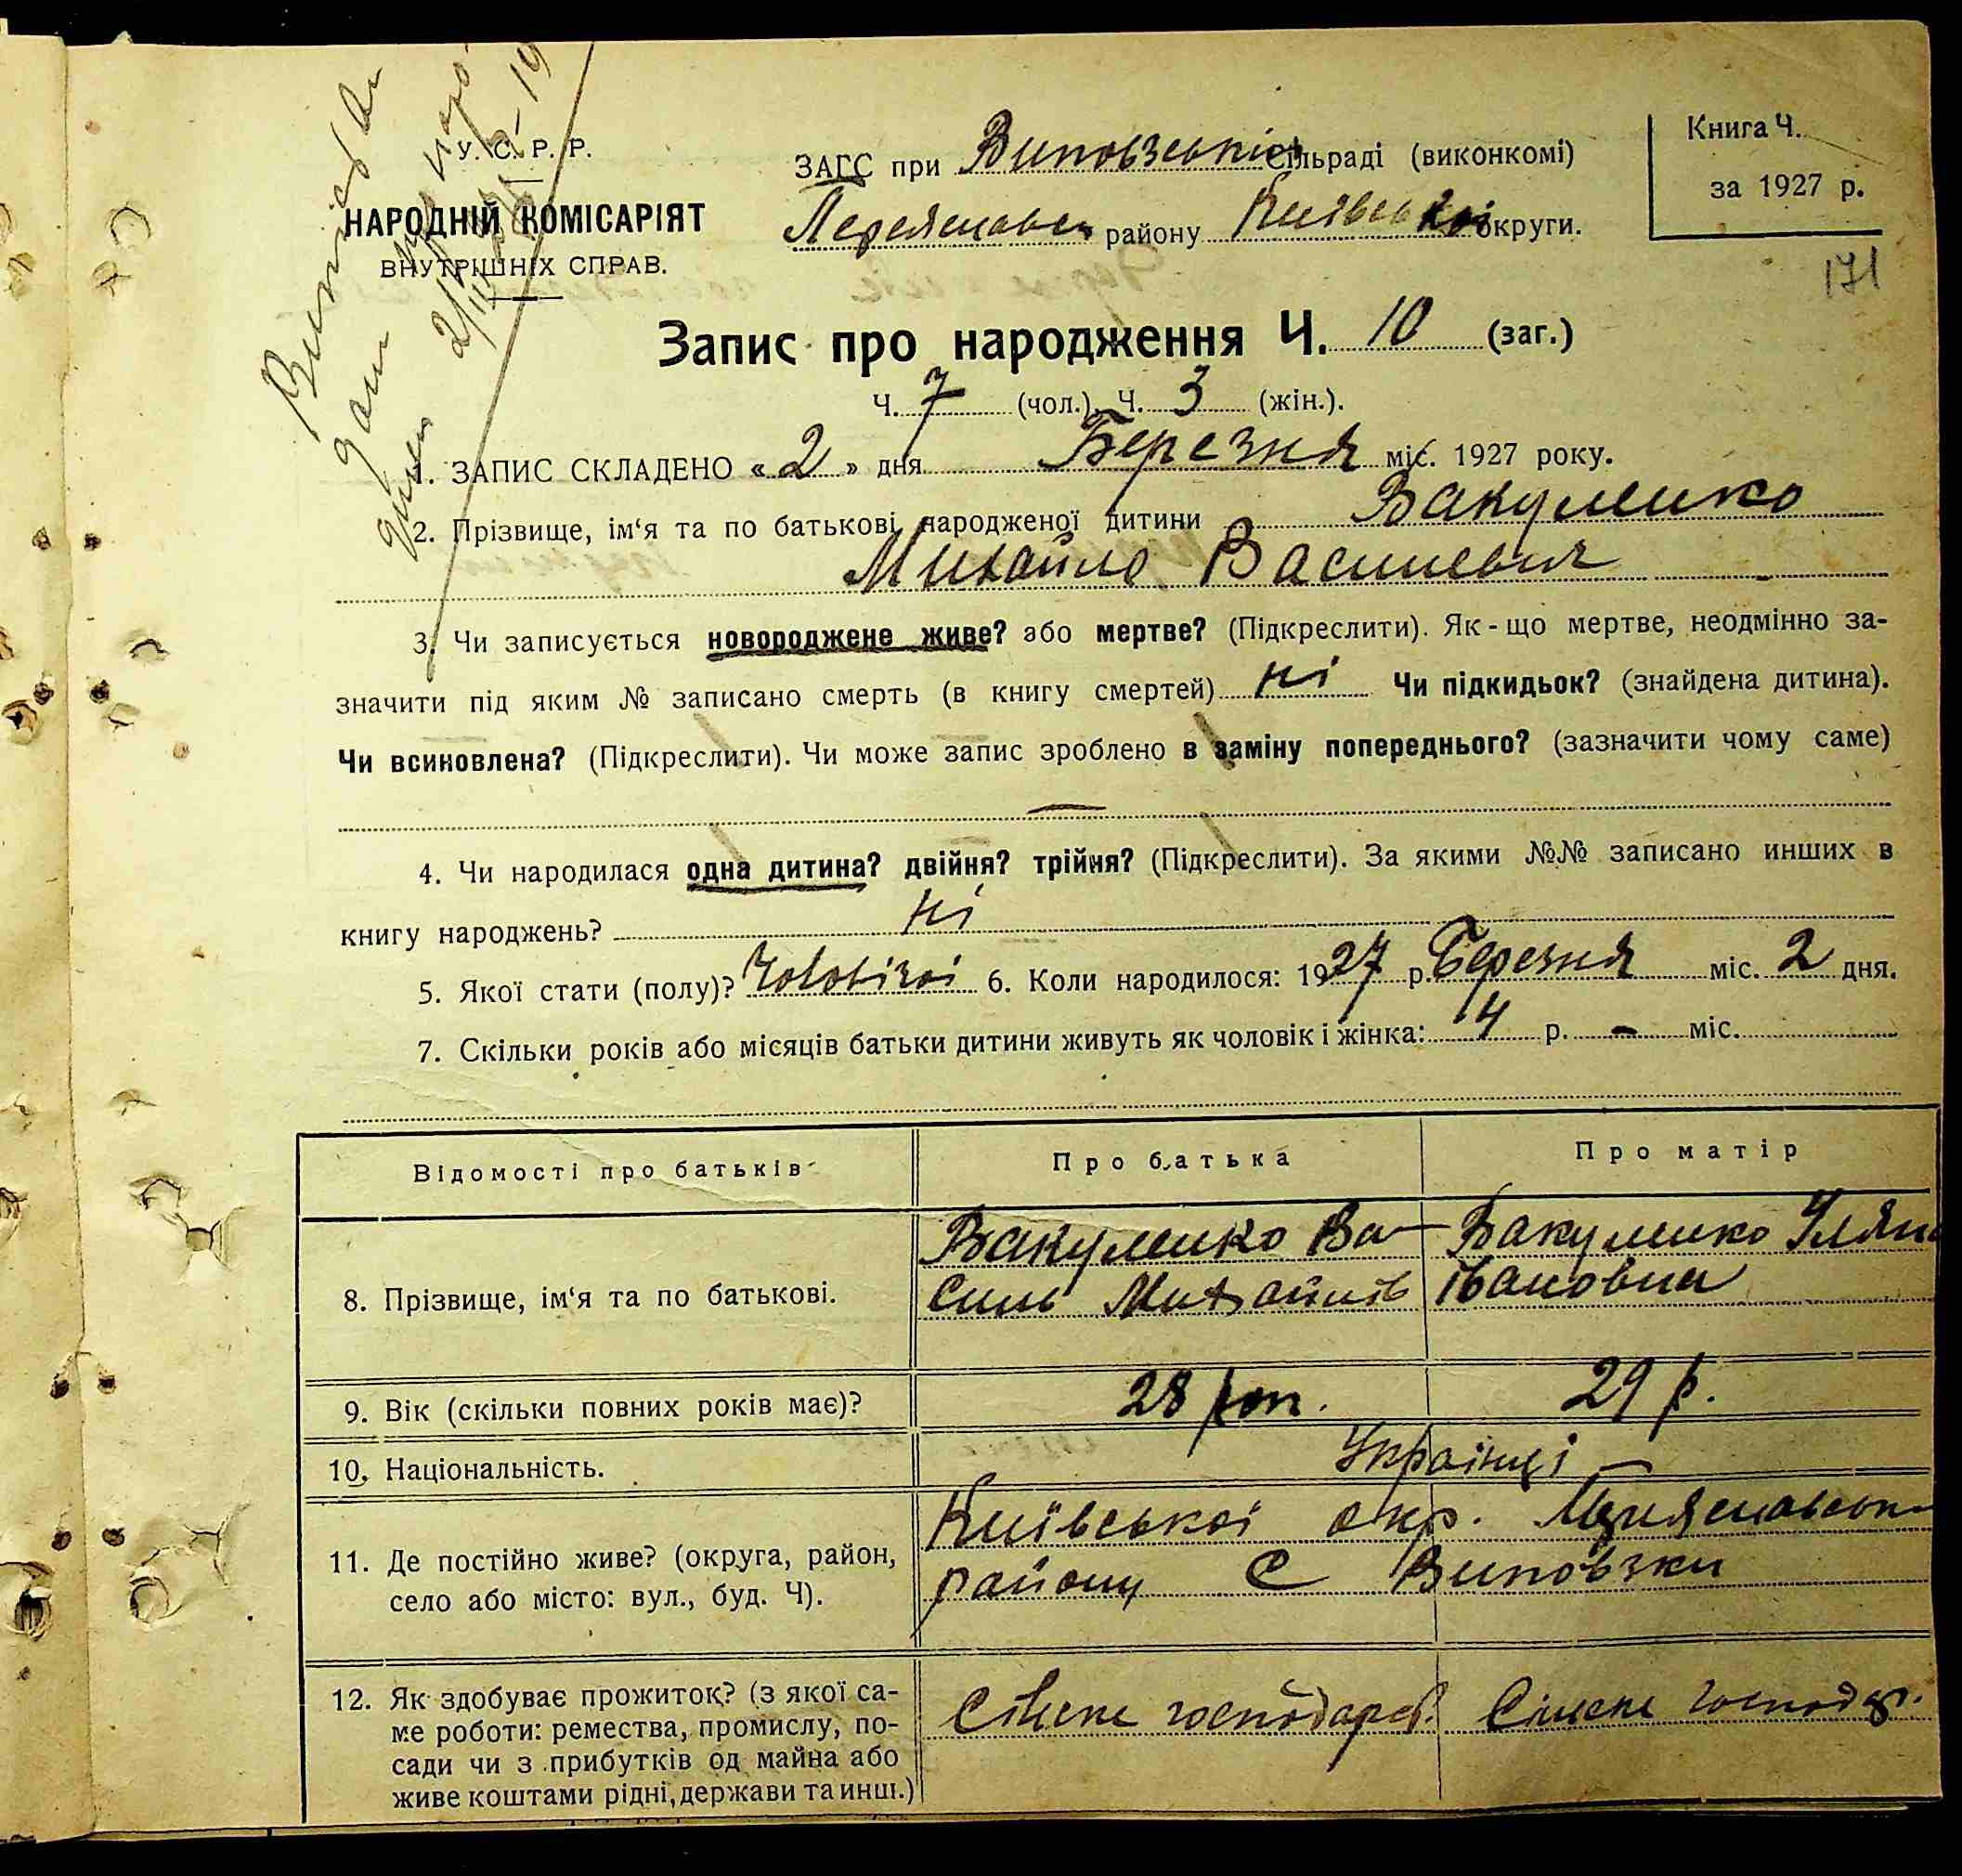 У. С. Р. Р.
НАРОДНІЙ КОМІСАРІЯТ
ВНУТРІШНІХ СПРАВ.
ЗАГС при Виповзській сільраді (виконкомі)
Переяславськ району Київської округи.
Книга Ч.
за 1927 р.
171
Запис про народження Ч. 10 (заг.)
Ч. 7 (чол.). Ч. 3 (жін.).
1. ЗАПИС СКЛАДЕНО « 2 » дня Березня міс. 1927 року.
2. Прізвище, ім‘я та по батькові народженої дитини Вакуленко
Михайло Васильевич
3. Чи записується новороджене живе? або мертве? (Підкреслити). Як-що мертве, неодмінно за-
значити під яким № записано смерть (в книгу смертей) ні Чи підкидьок? (знайдена дитина).
Чи всиновлена? (Підкреслити). Чи може запис зроблено в заміну попереднього? (зазначити чому саме)
—
4. Чи народилася одна дитина? двійня? трійня? (Підкреслити). За якими №№ записано инших в
книгу народжень? ні
5. Якої стати (полу)? Чоловічої 6. Коли народилося: 1927 р. Березня міс. 2 дня.
7. Скільки років або місяців батьки дитини живуть як чоловік і жінка: 4 р. - міс.
Відомості про батьків Про батька Про матір
8. Прізвище, ім‘я та по батькові.
Вакуленко Ва-
силь Михайлів
Вакуленко Уляна
Івановна
9. Вік (скільки повних років має)? 28 рок. 29 р.
10. Національність. Українці —
11. Де постійно живе? (округа, район,
село або місто: вул., буд. Ч).
Київської окр. Переяславськ
району С Виповзки
12. Як здобуває прожиток? (з якої са-
ме роботи: ремества, промислу, по-
сади чи з прибутків од майна або
живе коштами рідні, держави та инш.)
Сільске господарст. Сільске господар.